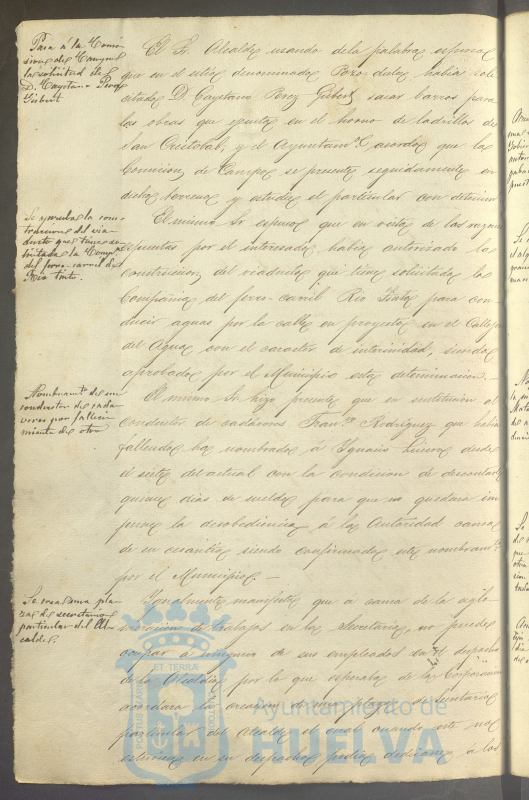 Pasa á la Comi-
sion de Campo
la solicitud de
D. Cayetano Perez
Gisbert
El Sr. Alcalde usando de la palabra expuso
que en el sitio denominado Pozo-dulce habia soli-
citado D. Cayetano Perez Gisbert, sacar barros para
las obras que ejecuta en el horno de ladrillos de
San Cristobal, y el Ayuntam.to acordó que la
Comision de Campo se presente seguidamente en
dicho terreno y estudie el particular con detencion
Se aprueba la cons-
truccion del via-
ducto que tiene so-
licitada la Comp.a
del ferro-carril de
Rio tinto.
El mismo Sr. expuso que en vista de las razones
expuestas por el interesado habia autorizado la
construccion del viaducto que tiene solicitada la
Compañia del ferro-carril Rio Tinto para con-
ducir aguas por la calle en proyecto en el Callejon
del Agua con el caracter de interinidad, siendo
aprobada por el Municipio esta determinacion.
Nombram.to de un
conductor de cada-
veres por falleci-
miento de otro
El mismo Sr. hizo presente que en sustitucion al
conductor de cadáveres Fran.co Rodriguez que habia
fallecido ha nombrado á Ignacio desde
el siete del actual con la condicion de descontarle
quince dias de sueldo para que no quedara im-
pune la desobediencia á la Autoridad causa
de su cesantia siendo confirmado este nombram.to
por el Municipio.
Se crea una pla-
za de secretario
particular del Al-
calde.
Igualmente manifestó que á causa de la aglo-
meracion de trabajos en la Secretaria, no puede
ocupar á ninguno de sus empleados en el despacho
de la Alcaldia por lo que esperaba de la Corporacion
acordara la creacion de una plaza de Secretario
particular del Alcalde el cual cuando este no
estuviese en su despacho podia dedicarse á los
Ayuntamiento de
HUELVA